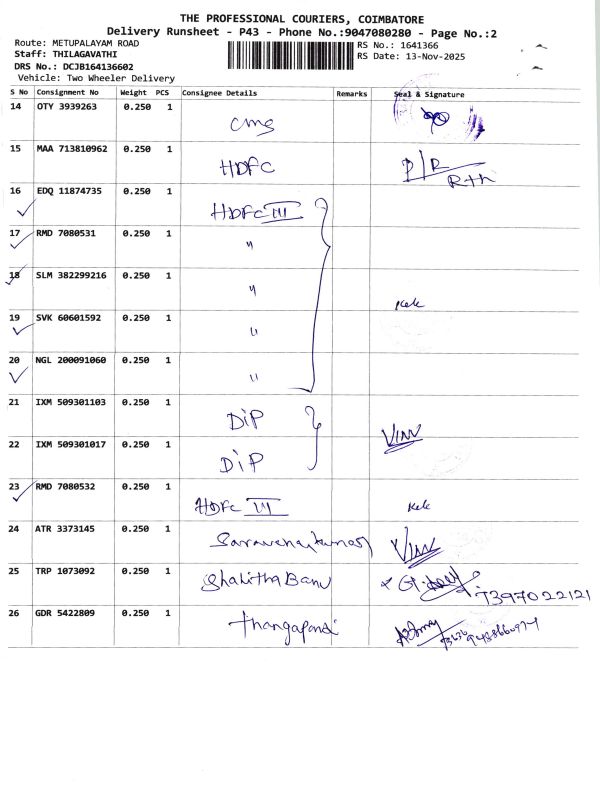 THE PROFESSIONAL COURIERS, COIMBATORE
Delivery Runsheet - P43 - Phone No.:9047080280 - Page No.:2
Route: METUPALAYAM ROAD
Staff: THILAGAVATHI
DRS No.: DCJB164136602
Vehicle: Two Wheeler Delivery
RS No.: 1641366
RS Date: 13-Nov-2025
S No Consignment No Weight PCS Consignee Details Remarks Seal & Signature
14 OTY 3939263 0.250 1 cms
15 MAA 713810962 0.250 1 HDFC P/R
16 EDQ 11874735 0.250 1 HDFC III
17 RMD 7080531 0.250 1 "
18 SLM 382299216 0.250 1 " Kek
19 SVK 60601592 0.250 1 "
20 NGL 200091060 0.250 1 "
21 IXM 509301103 0.250 1 DiP
22 IXM 509301017 0.250 1 DiP
23 RMD 7080532 0.250 1 HDFC III Kek
24 ATR 3373145 0.250 1
25 TRP 1073092 0.250 1 Shalitha Banu 7397022121
26 GDR 5422809 0.250 1